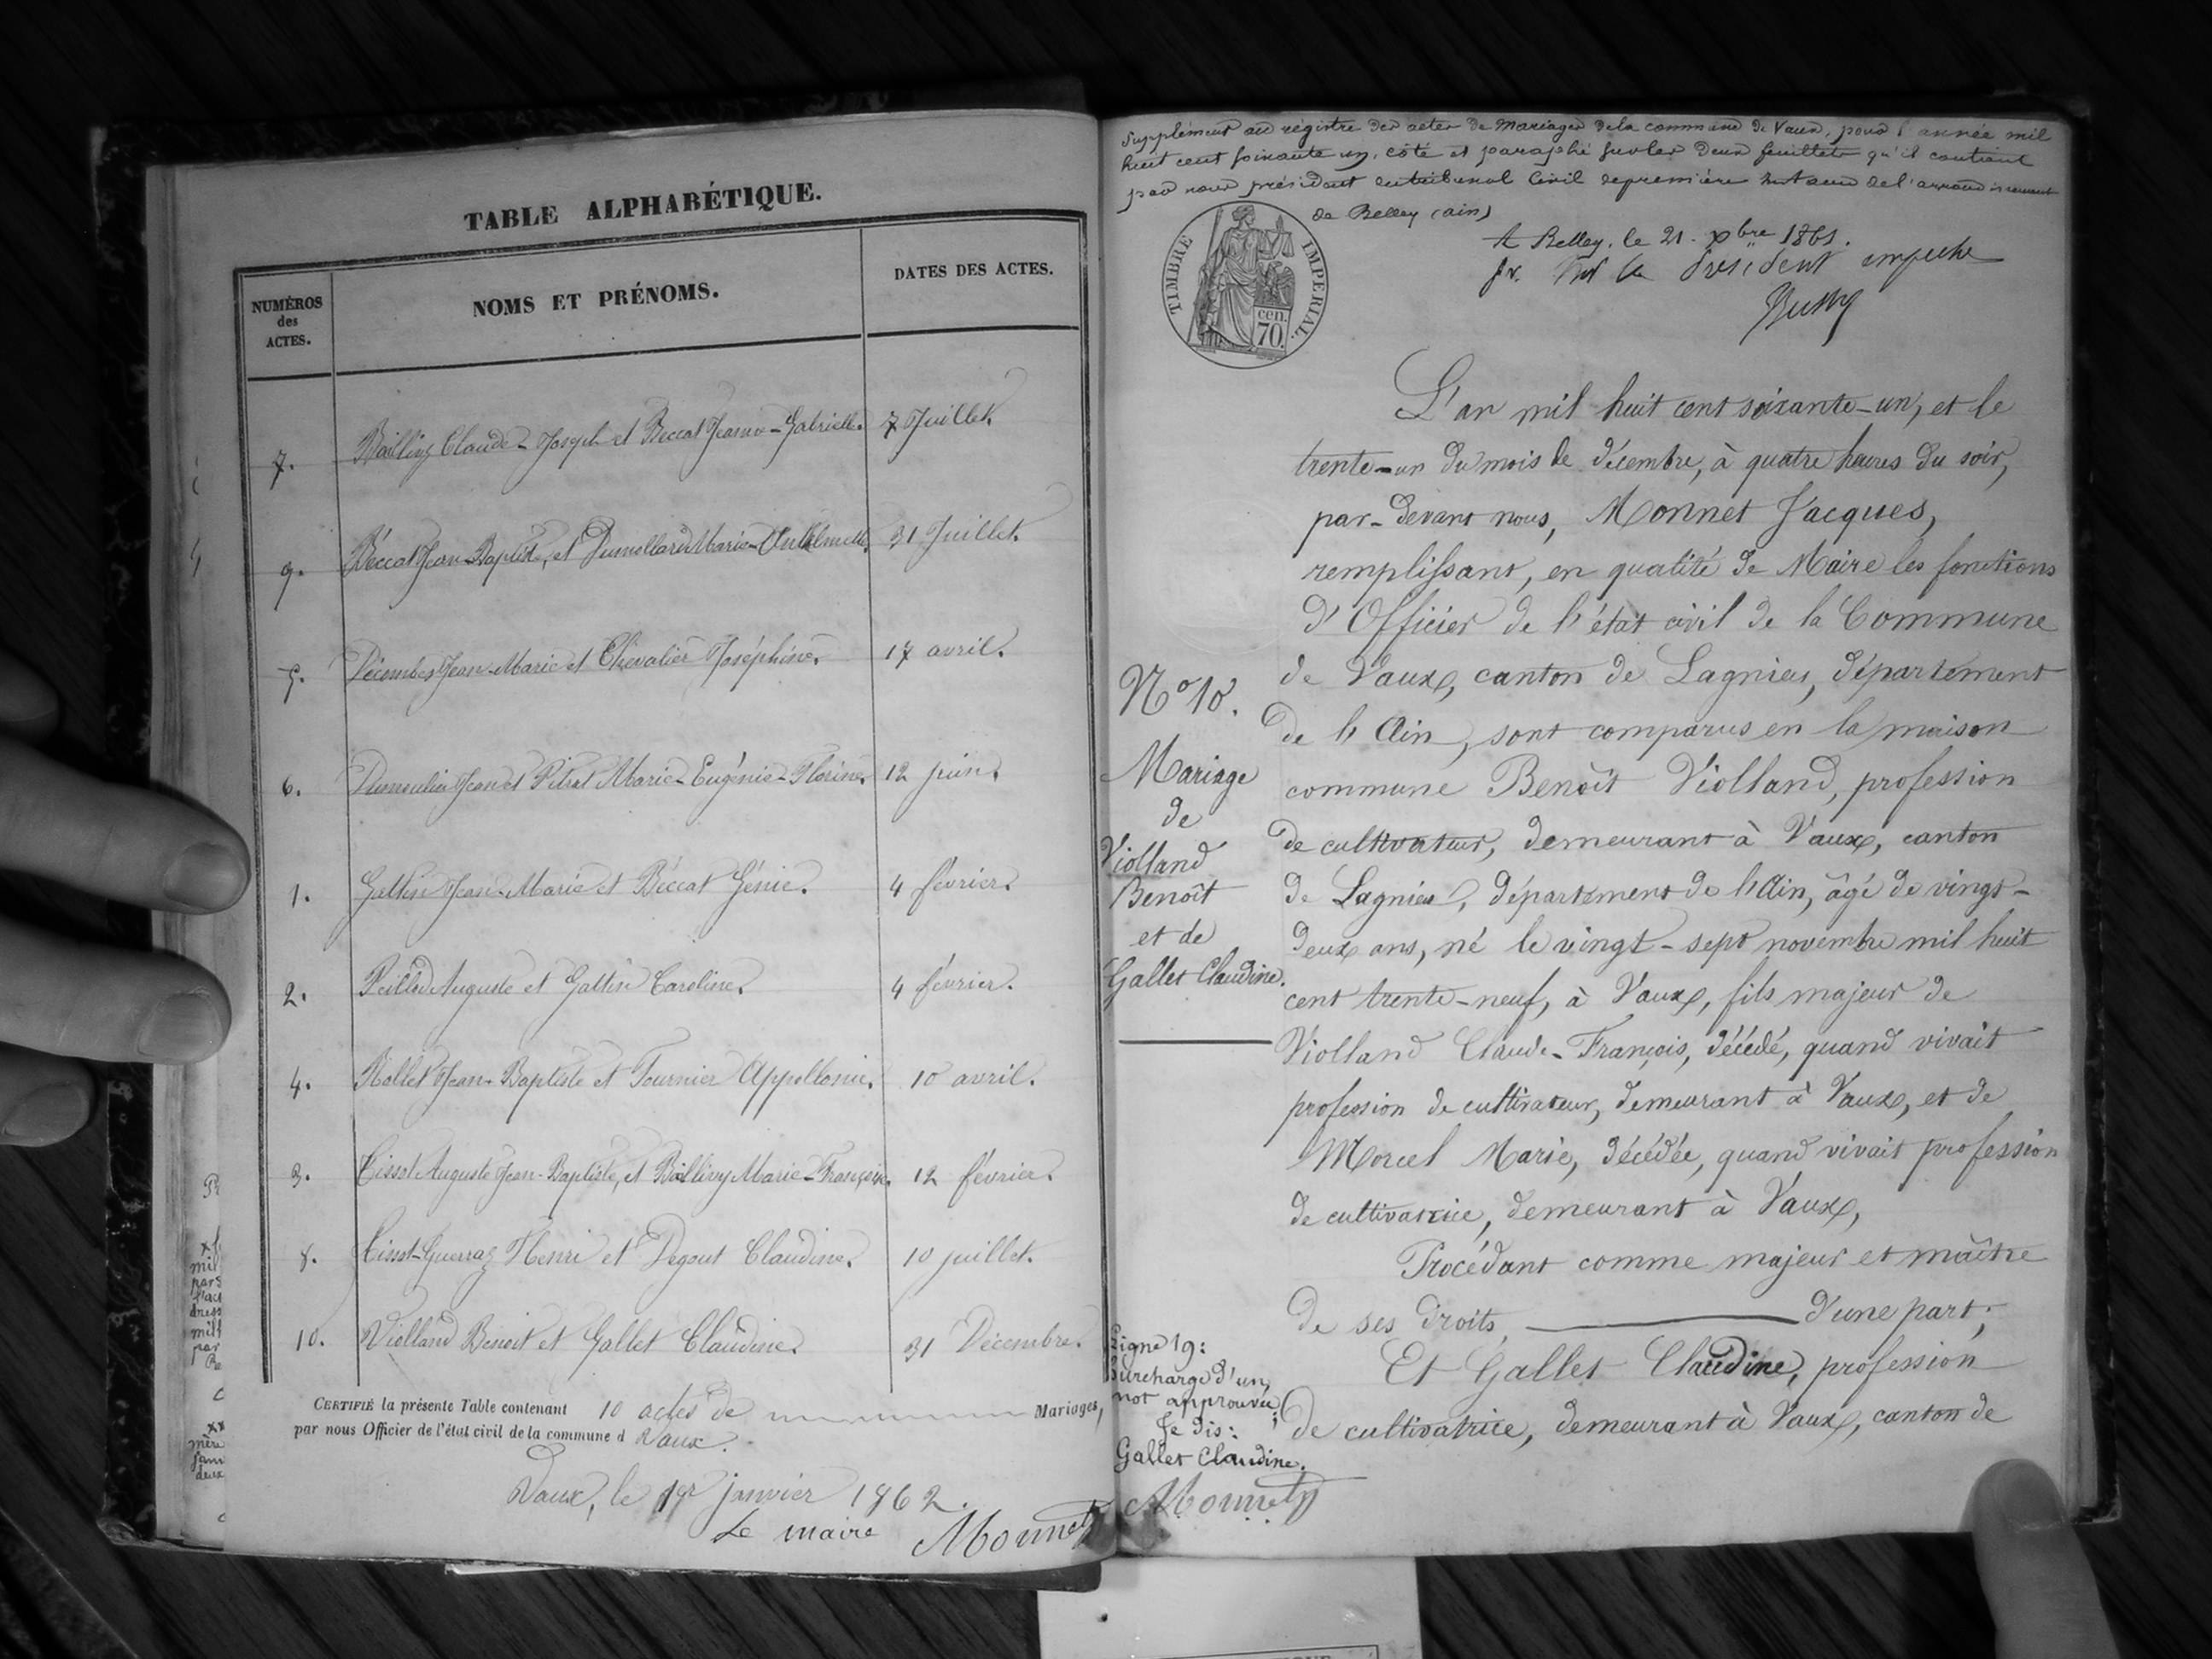 TABLE ALPHABÉTIQUE.
NUMÉROS
des
ACTES.
NOMS ET PRÉNOMS.
DATES DES ACTES.
7. Claude-Joseph et Béccat Jeanne-Gabrielle. 7 Juillet.
9. Béccat Jean-Baptiste, et Dumollard Marie-Anthelmette. 31 Juillet.
5. Décombes Jean-Marie et Chevalier Joséphine. 17 avril.
6. Jean et Pitrat Marie-Eugénie-Florine. 12 juin.
1. Jean-Marie et Béccat Génie. 4 février.
2. Auguste et Caroline. 4 février.
4. Rollet Jean-Baptiste et Fournier Appollonie. 10 avril.
3. Tissot Auguste Jean-Baptiste, et Marie-Françoise. 12 février.
8. Tissot-Guerraz Henri et Degout Claudine. 10 juillet.
10. Violland Benoit et Gallet Claudine. 31 Décembre.
CERTIFIÉ la présente Table contenant 10 actes de Mariages,
par nous Officier de l'état civil de la commune d Vaux.
Vaux, le 1er janvier 1862.
Le maire Monnet
Supplément au régistre des actes de Mariages de la commune de Vaux, pour l'année mil
huit cent soixante un, côté et paraphé sur les deux feuillets qu'il contient
par nous président du tribunal Civil de première instance de l'arrondissement
de Belley (ain)
A Belley, le 21 Xbre 1861.
pr. Mr le Président empeché
TIMBRE IMPÉRIAL.
70. cen.
L'an mil huit cent soixante-un, et le
trente-un du mois de décembre, à quatre heures du soir,
par-devant nous, Monnet Jacques,
remplissant, en qualité de Maire les fonctions
d'Officier de l'état civil de la Commune
de Vaux, canton de Lagnieu, département
de l'Ain, sont comparus en la maison
commune Benoît Violland, profession
de cultivateur, demeurant à Vaux, canton
de Lagnieu, département de l'Ain, âgé de vingt-
deux ans, né le vingt-sept novembre mil huit
cent trente-neuf, à Vaux, fils majeur de
Violland Claude-François, décédé, quand vivait
profession de cultivateur, demeurant à Vaux, et de
Morcel Marie, décédée, quand vivait profession
de cultivatrice, demeurant à Vaux,
Procédant comme majeur et maître
de ses droits, d'une part;
Et Gallet Claudine, profession
de cultivatrice, demeurant à Vaux, canton de
No 10.
Mariage
de
Violland
Benoît
et de
Gallet Claudine.
Ligne 19:
surcharge d'un
mot approuvée;
Je dis:
Gallet Claudine.
Monnet